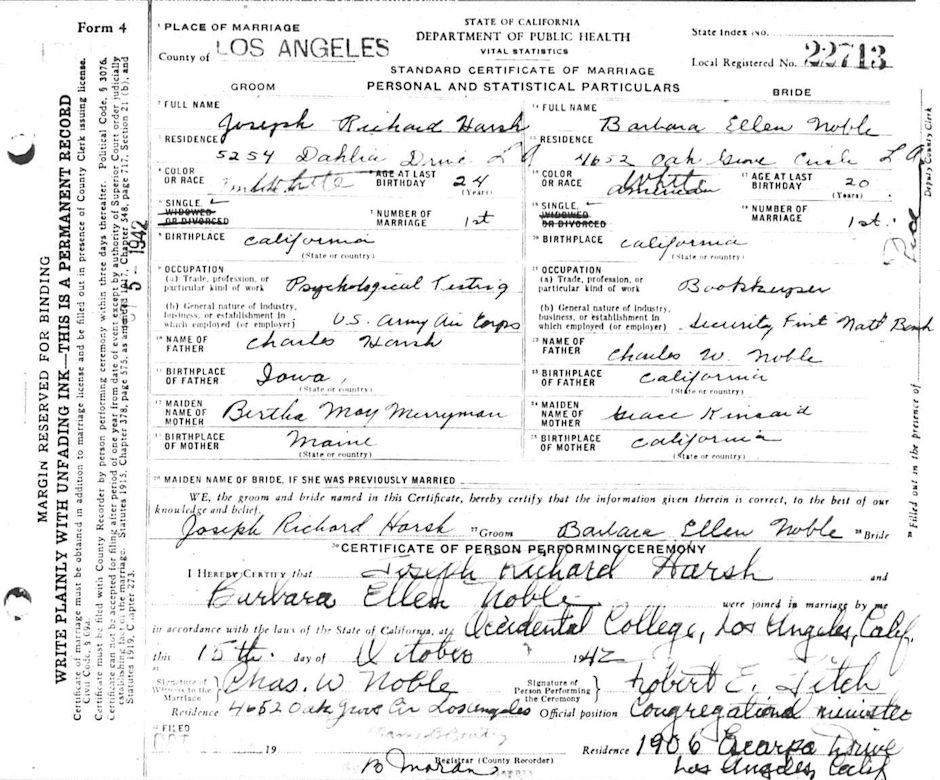 Form 4
MARGIN RESERVED FOR BINDING
WRITE PLAINLY WITH UNFADING INK—THIS IS A PERMANENT RECORD
Certificate of marriage must be obtained in addition to marriage license and be filled out in presence of County Clerk issuing license.
Civil Code, § 69a.
Certificate must be filed with County Recorder by person performing ceremony within three days thereafter. Political Code, § 3076.
Certificate can not be accepted for filing after period of one year from date of event except by authority of Superior Court order judicially
establishing the marriage. Statutes 1915, Chapter 378, page 575, as amended 1917, Chapter 548, page 717, Section 21 (b), and
Statutes 1919, Chapter 273.
5 - 1942
PLACE OF MARRIAGE
County of LOS ANGELES
STATE OF CALIFORNIA
DEPARTMENT OF PUBLIC HEALTH
VITAL STATISTICS
STANDARD CERTIFICATE OF MARRIAGE
PERSONAL AND STATISTICAL PARTICULARS
State Index No.
Local Registered No. 22713
GROOM
FULL NAME Joseph Richard Harsh
RESIDENCE 5254 Dahlia Drive L A
COLOR OR RACE White AGE AT LAST BIRTHDAY 24 (Years)
SINGLE, WIDOWED OR DIVORCED NUMBER OF MARRIAGE 1st
BIRTHPLACE California
(State or country)
OCCUPATION
(a) Trade, profession, or particular kind of work Psychological Testing
(b) General nature of industry, business, or establishment in which employed (or employer) U.S. Army Air Corps
NAME OF FATHER Charles Harsh
BIRTHPLACE OF FATHER Iowa,
(State or country)
MAIDEN NAME OF MOTHER Bertha May Merryman
BIRTHPLACE OF MOTHER Maine
(State or country)
BRIDE
FULL NAME Barbara Ellen Noble
RESIDENCE 4652 Oak Grove Circle L A
COLOR OR RACE White American AGE AT LAST BIRTHDAY 20 (Years)
SINGLE, WIDOWED OR DIVORCED NUMBER OF MARRIAGE 1st.
BIRTHPLACE California
(State or country)
OCCUPATION
(a) Trade, profession, or particular kind of work Bookkeeper
(b) General nature of industry, business, or establishment in which employed (or employer) Security First Natl Bank
NAME OF FATHER Charles W. Noble
BIRTHPLACE OF FATHER California
(State or country)
MAIDEN NAME OF MOTHER Grace Kincaid
BIRTHPLACE OF MOTHER California
(State or country)
MAIDEN NAME OF BRIDE, IF SHE WAS PREVIOUSLY MARRIED
WE, the groom and bride named in this Certificate, hereby certify that the information given therein is correct, to the best of our
knowledge and belief.
Joseph Richard Harsh Groom Barbara Ellen Noble Bride
CERTIFICATE OF PERSON PERFORMING CEREMONY
I HEREBY CERTIFY that Joseph Richard Harsh and
Barbara Ellen Noble were joined in marriage by me
in accordance with the laws of the State of California, at Occidental College, Los Angeles, Calif.
this 15th. day of October 1942
Signature of Witness to the Marriage } Chas. W Noble
Residence 4652 Oak Grove Cir Los Angeles
Signature of Person Performing the Ceremony } Robert E. Fitch
Official position Congregational minister
Residence 1906 Escarpa Drive
Los Angeles, Calif
FILED
OCT 19
B Moran
Registrar (County Recorder)
Filled out in the presence of
Deputy County Clerk